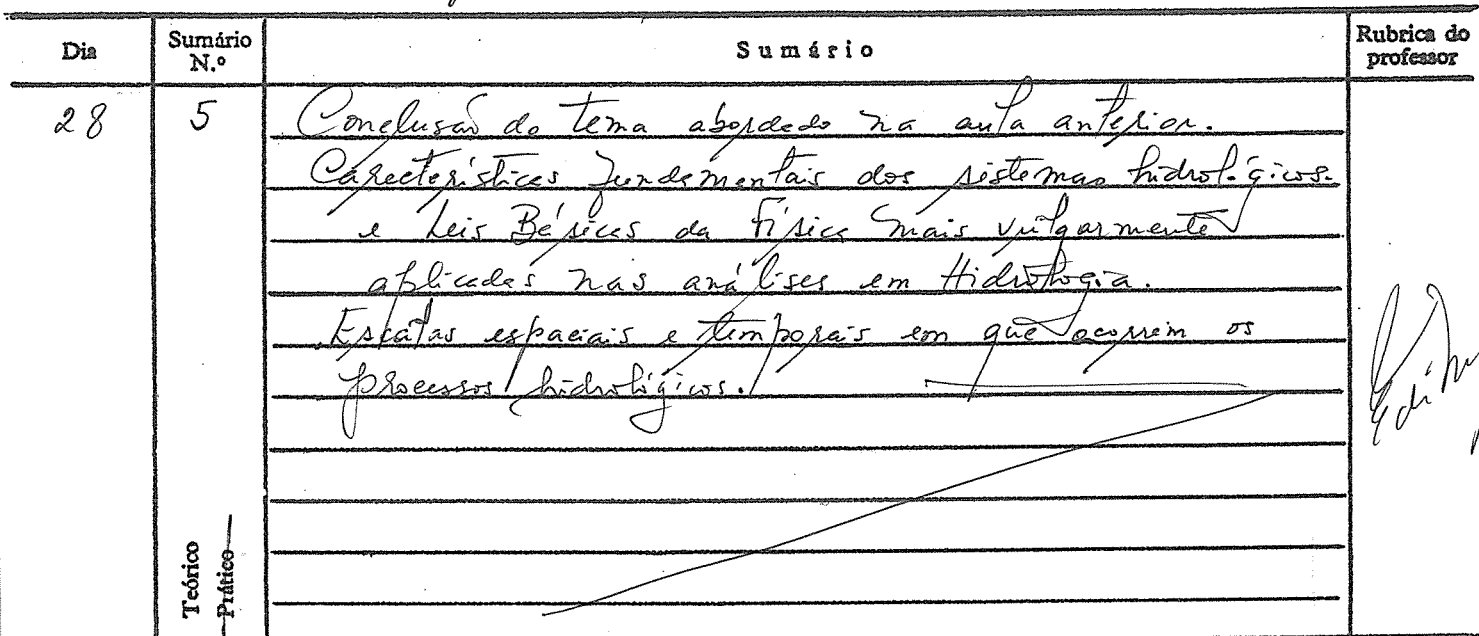 Dia Sumário N.º Sumário Rubrica do professor
28 5 Conclusão do tema abordado na aula anterior.
Características fundamentais dos sistemas hidrológicos.
e Leis Básicas da Física mais vulgarmente
aplicadas nas análises em Hidrologia.
Escalas espaciais e temporais em que ocorrem os
processos hidrológicos.
Teórico
Prático